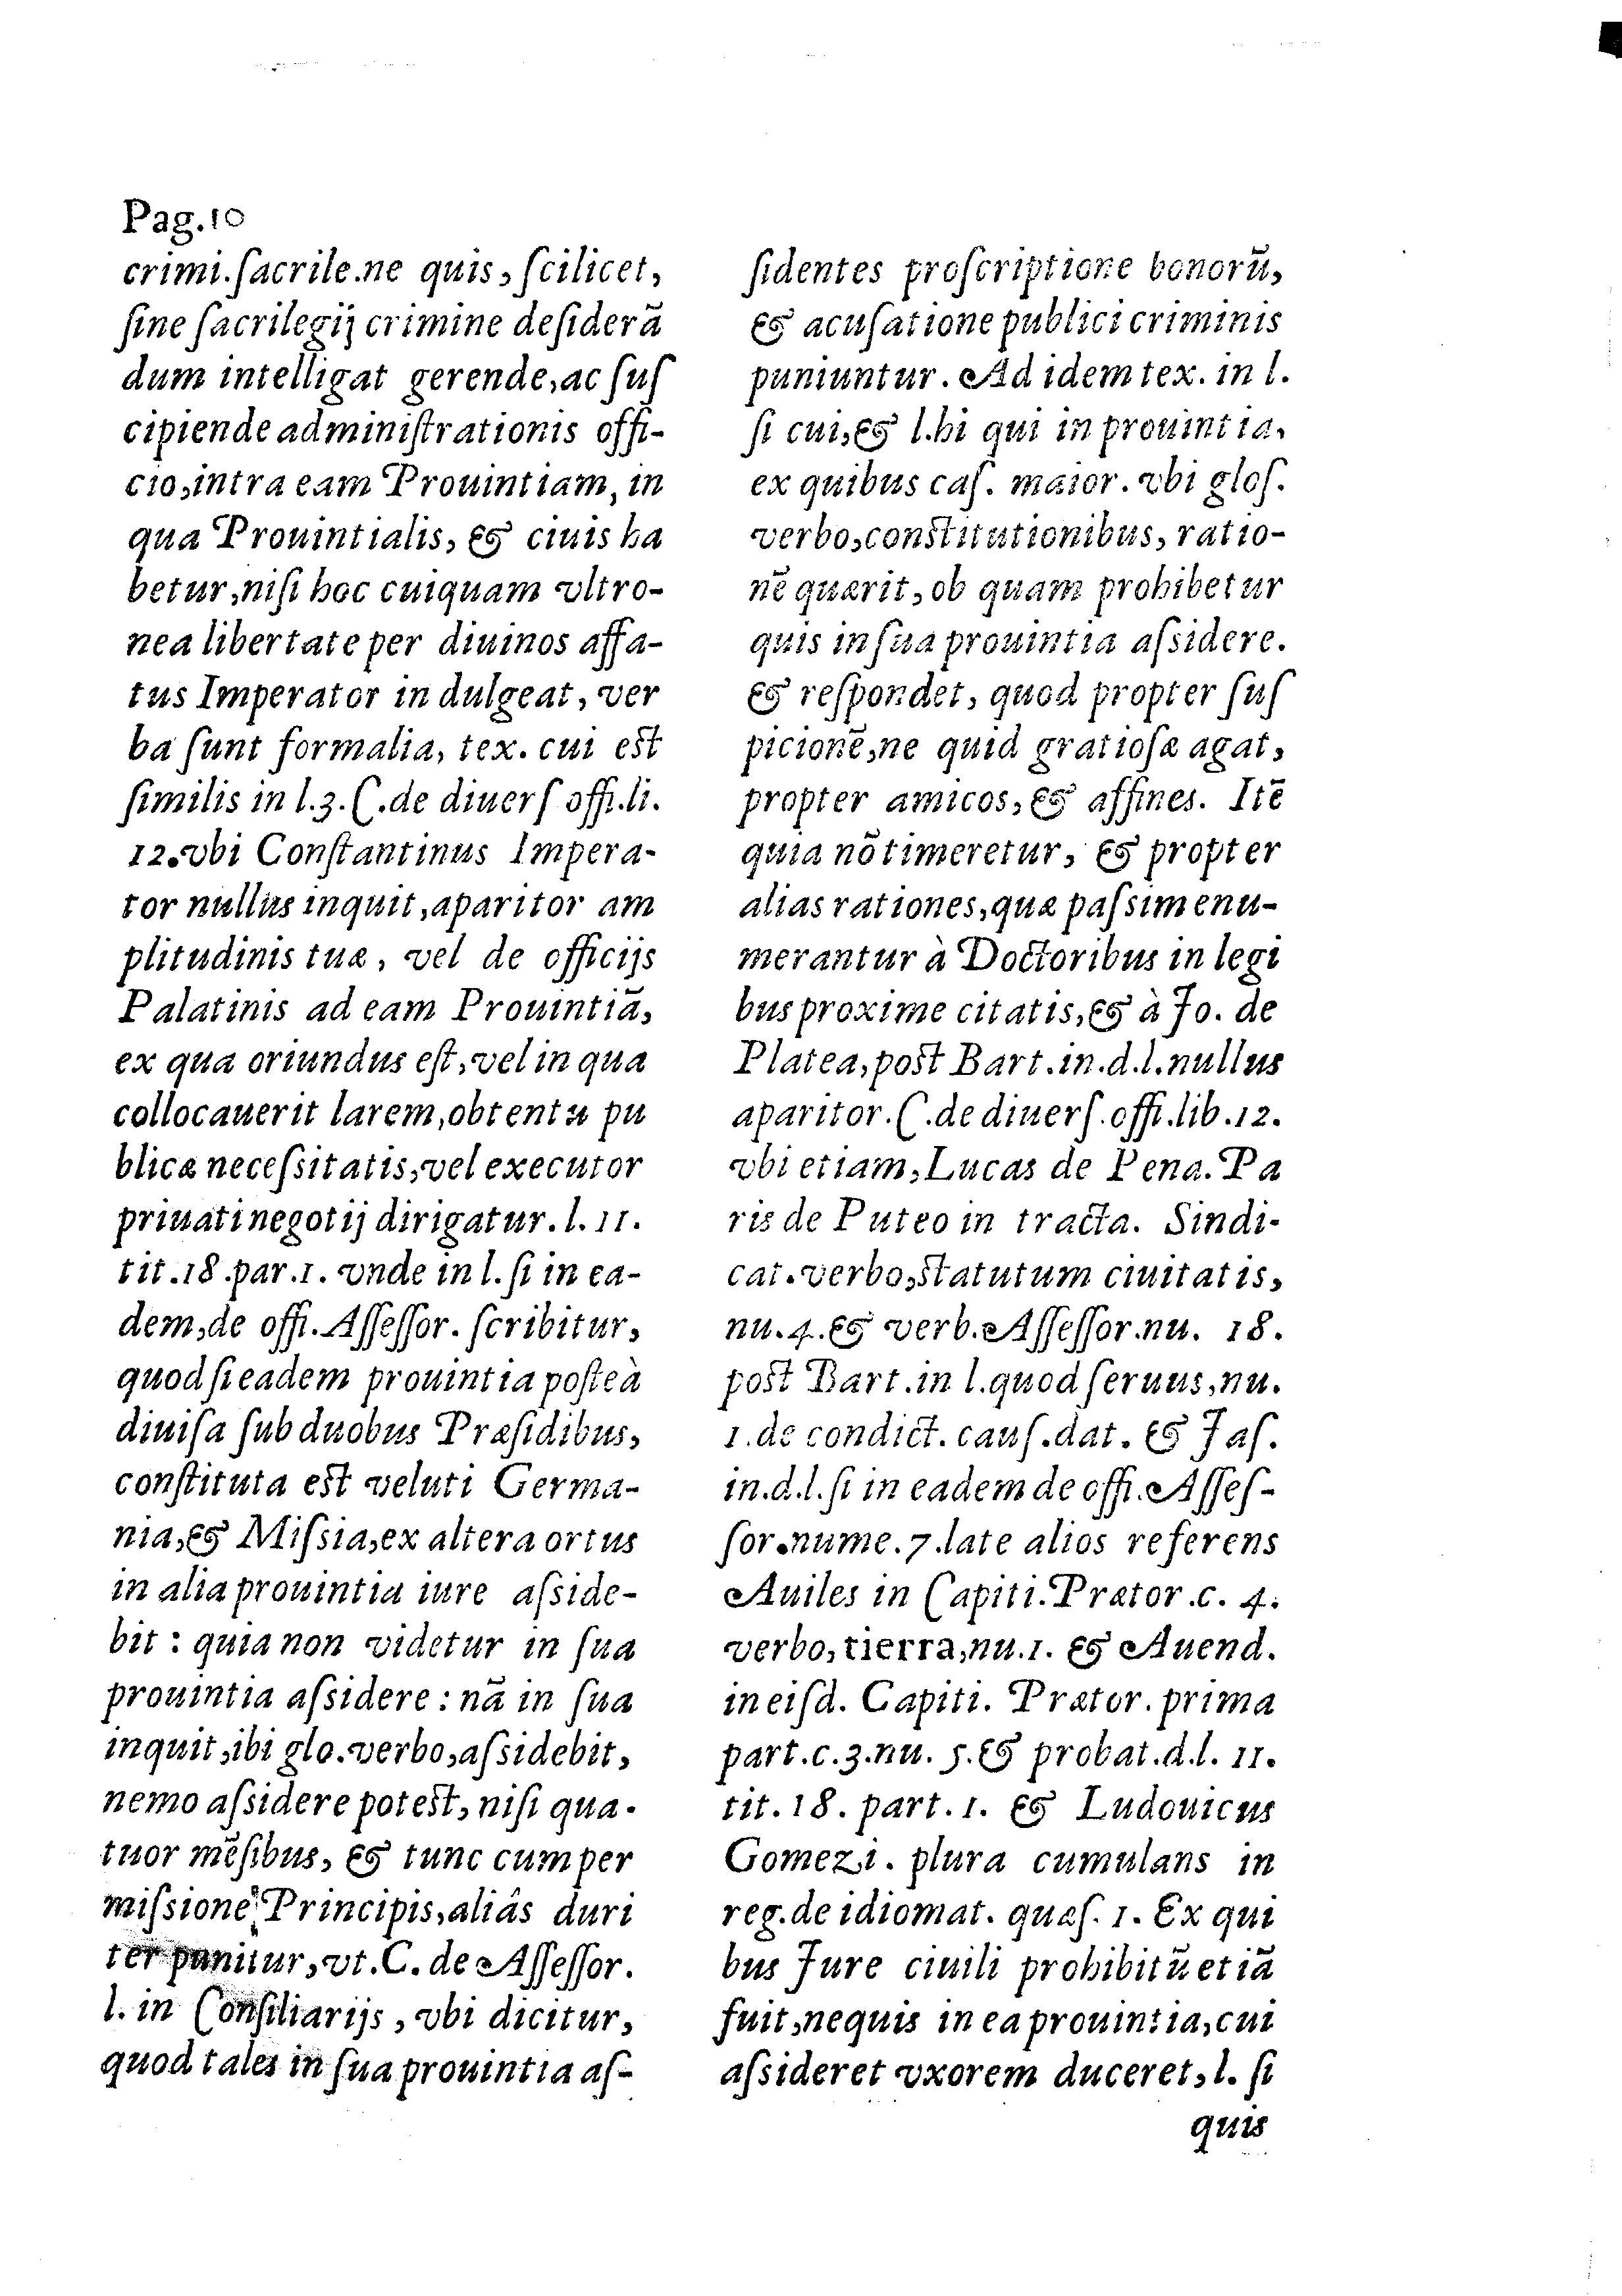 Pag.10
crimi.ſacrile.ne quis, ſcilicet,
ſine ſacrilegij crimine deſiderã
dum intelligat gerende,ac ſuſ
cipiende adminiſtrationis offi-
cio,intra eam Prouintiam, in
qua Prouintialis, & ciuis ha
betur,niſi hoc cuiquam vltro-
nea libertate per diuinos affa-
tus Imperator in dulgeat, ver
ba ſunt formalia, tex. cui eſt
ſimilis in l.3.C.de diuerſ offi.li.
12.vbi Conſtantinus Impera-
tor nullus inquit,aparitor am
plitudinis tuæ, vel de officijs
Palatinis ad eam Prouintiã,
ex qua oriundus eſt,vel in qua
collocauerit larem,obtentu pu
blicæ neceſsitatis,vel executor
priuati negotij dirigatur.l.11.
tit.18.par.1. vnde in l.ſi in ea-
dem,de offi.Aſſeſſor. ſcribitur,
quod ſi eadem prouintia poſteà
diuiſa ſub duobus Præſidibus,
conſtituta eſt veluti Germa-
nia,& Miſsia,ex altera ortus
in alia prouintia iure aſside-
bit : quia non videtur in ſua
prouintia aſsidere : nã in ſua
inquit,ibi glo.verbo,aſsidebit,
nemo aſsidere poteſt, niſi qua-
tuor mẽſibus, & tunc cum per
miſsione Principis,aliâs duri
ter punitur, vt.C. de Aſſeſſor.
l. in Conſiliarijs, vbi dicitur,
quod tales in ſua prouintia aſ-
ſidentes proſcriptione bonorũ,
& acuſatione publici criminis
puniuntur. Ad idem tex. in l.
ſi cui,& l.hi qui in prouintia,
ex quibus caſ. maior. vbi gloſ.
verbo,conſtitutionibus, ratio-
nẽ quærit, ob quam prohibetur
quis in ſua prouintia aſsidere.
& reſpondet, quod propter ſuſ
picionẽ,ne quid gratioſæ agat,
propter amicos,& affines. Itẽ
quia nõ timeretur, & propter
alias rationes,quæ paſsim enu-
merantur à Doctoribus in legi
bus proxime citatis,& à Jo. de
Platea,poſt Bart.in.d.l.nullus
aparitor.C.de diuerſ.offi.lib.12.
vbi etiam,Lucas de Pena. Pa
ris de Puteo in tracta. Sindi-
cat.verbo,ſtatutum ciuitatis,
nu.4.& verb.Aſſeſſor.nu. 18.
poſt Bart.in l.quod ſeruus,nu.
1.de condict. cauſ.dat. & Jaſ.
in.d.l.ſi in eadem de offi.Aſſeſ-
ſor.nume.7.late alios referens
Auiles in Capiti.Prætor.c. 4.
verbo,tierra,nu.1. & Auend.
in eiſd. Capiti. Prætor. prima
part.c.3.nu. 5.& probat.d.l. 11.
tit.18. part.1. & Ludouicus
Gomezi. plura cumulans in
reg.de idiomat. quæſ. 1. Ex qui
bus Jure ciuili prohibitũ etiã
fuit,nequis in ea prouintia,cui
aſsideret vxorem duceret,l. ſi
quis